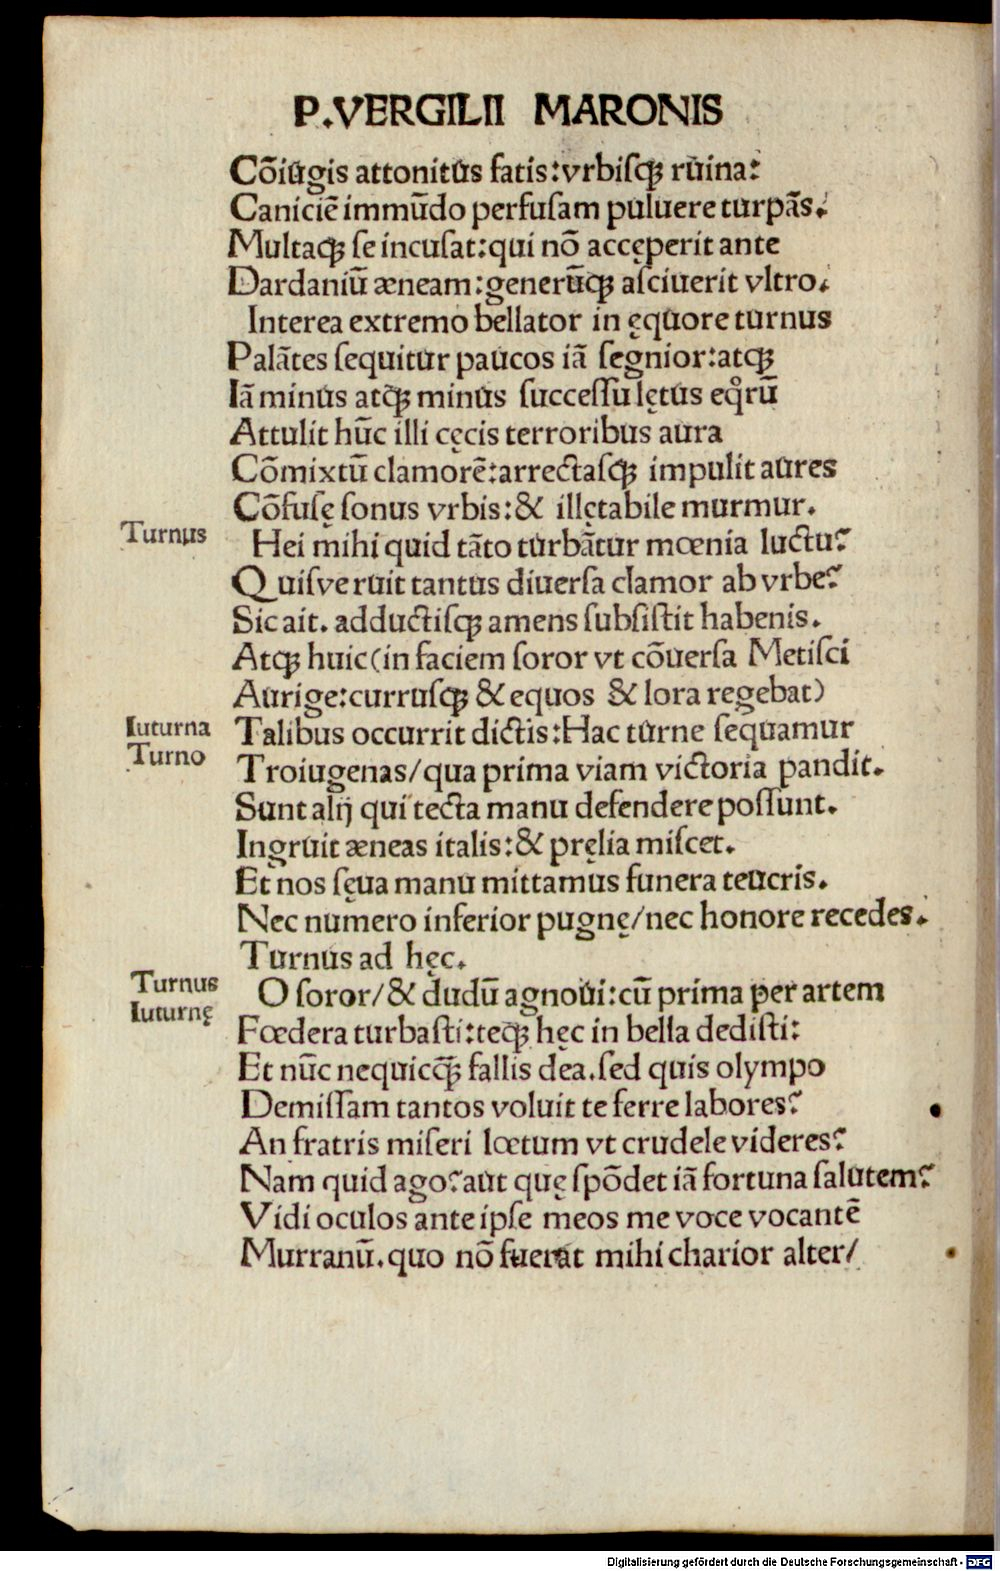 P.VERGILII MARONIS
Cōiugis attonitus fatis:vrbiſqꝫ ruina:
Caniciē immūdo perfuſam puluere turpās.
Multaqꝫ ſe incuſat:qui nō accęperit ante
Dardaniū æneam:generūqꝫ aſciuerit vltro.
Interea extremo bellator in ęquore turnus
Palātes ſequitur paucos iā ſegnior:atqꝫ
Iā minus atqꝫ minus ſucceſſu lętus eqͦrū
Attulit hūc illi cęcis terroribus aura
Cōmixtū clamorē:arrectaſqꝫ impulit aures
Cōfuſę ſonus vrbis:& illętabile murmur.
Turnus
Hei mihi quid tāto turbātur mœnia luctu?
Quiſve ruit tantus diuerſa clamor ab vrbe?
Sic ait. adductiſqꝫ amens ſubſiſtit habenis.
Atqꝫ huic(in faciem ſoror vt cōuerſa Metiſci
Aurige:curruſqꝫ & equos & lora regebat)
Iuturna
Turno
Talibus occurrit dictis:Hac turne ſequamur
Troiugenas/qua prima viam victoria pandit.
Sunt alij qui tecta manu defendere poſſunt.
Ingruit æneas italis:& pręlia miſcet.
Et nos ſęua manu mittamus funera teucris.
Nec numero inferior pugnę/nec honore recedes.
Turnus ad hęc.
Turnus
Iuturnę
O ſoror/& dudū agnoui:cū prima per artem
Fœdera turbaſti:teqꝫ hęc in bella dediſti:
Et nūc nequicq̄ꝫ fallis dea.ſed quis olympo
Demiſſam tantos voluit te ferre labores?
An fratris miſeri lœtum vt crudele videres?
Nam quid ago?aut quę ſpōdet iā fortuna ſalutem?
Vidi oculos ante ipſe meos me voce vocantē
Murranū.quo nō fuerat mihi charior alter/
Digitalisierung gefördert durch die Deutsche Forschungsgemeinschaft - DFG